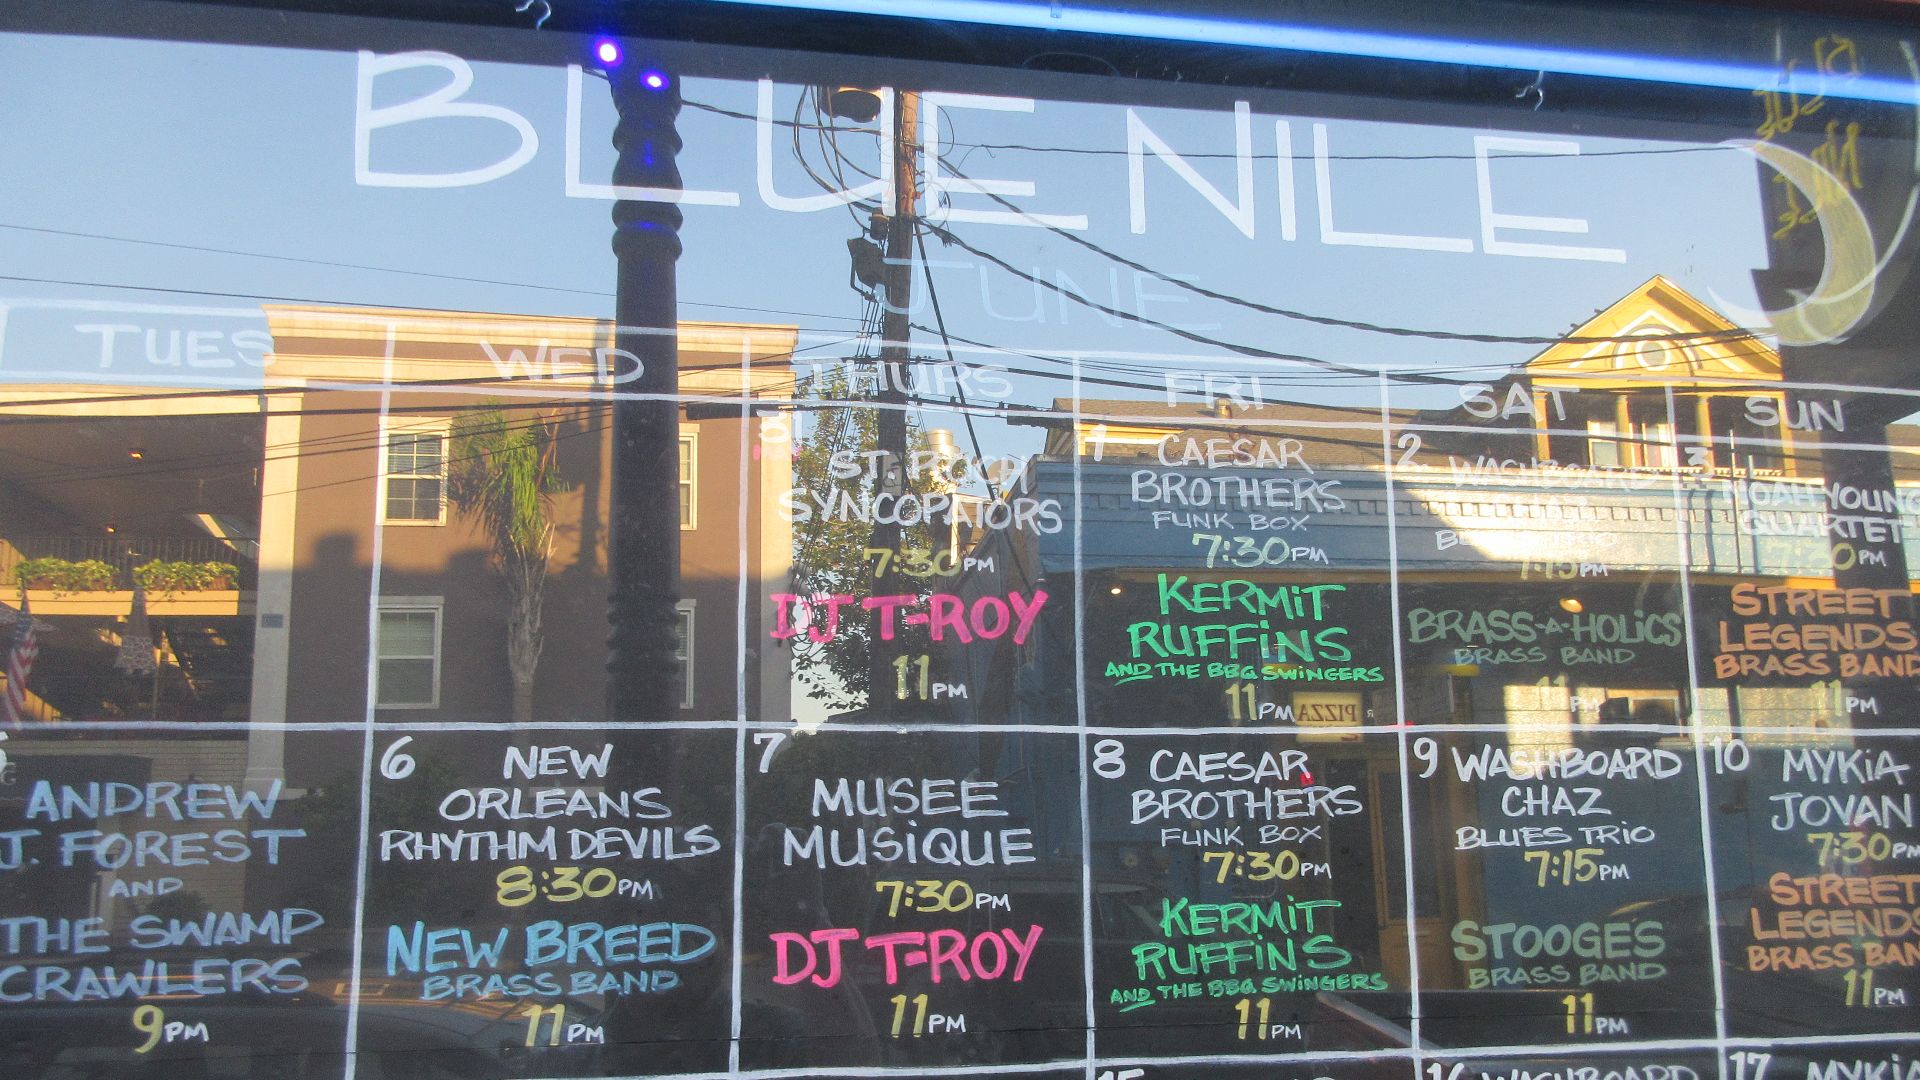 BLUE NILE
BLUE
NILE
JUNE
TUES WED THURS FRI SAT SUN
31
ST. ROCH
SYNCOPATORS
7:30PM
DJ T-ROY
11 PM
1
CAESAR
BROTHERS
FUNK BOX
7:30PM
KERMiT
RUFFiNS
AND THE BBQ SWiNGERS
11PM
2
WASHBOARD
CHAZ
BLUES TRIO
7:15PM
BRASS-A-HOLiCS
BRASS BAND
11 PM
3
NOAH YOUNG
QUARTET
7:30PM
STREET
LEGENDS
BRASS BAND
11 PM
PIZZA
ANDREW
J. FOREST
AND
THE SWAMP
CRAWLERS
9PM
6
NEW
ORLEANS
RHYTHM DEVILS
8:30PM
NEW BREED
BRASS BAND
11 PM
7
MUSEE
MUSiQUE
7:30PM
DJ T-ROY
11PM
8
CAESAR
BROTHERS
FUNK BOX
7:30PM
KERMiT
RUFFiNS
AND THE BBQ SWiNGERS
11PM
9
WASHBOARD
CHAZ
BLUES TRiO
7:15PM
STOOGES
BRASS BAND
11PM
10
MYKiA
JOVAN
7:30PM
STREET
LEGENDS
BRASS BAN
11PM
15
16 WASHBOARD
17 MYKiA